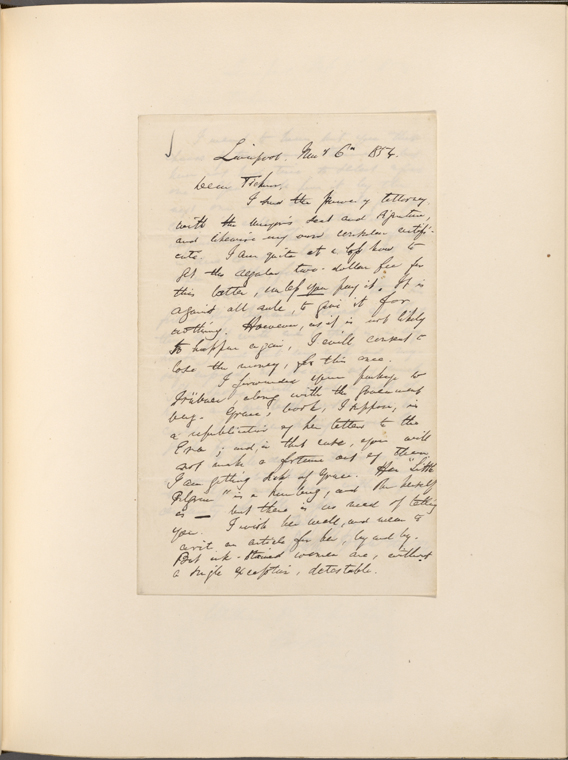 Liverpool. Nov 6th 1854.
Dear Ticknor,
I send the power of attorney
with the mayor's seal and signature,
and likewise my own consular certifi-
cate. I am quite at a loss how to
get the regular two-dollar fee for
this latter, unless you pay it. It is
against all rule, to give it for
nothing. However, as it is not likely
to happen again, I will consent to
lose the money, for this once.
I forwarded your package to
Trübner, along with the Government
bag. Grace's book, I suppose, is
a republication of her letters to the
Era; and, in that case, you will
not make a fortune out of them.
I am getting sick of Grace. Her "Little
Pilgrim" is a humbug, and she herself
is — but there is no need of telling
you. I wish her well, and mean to
write an article for her, by and by.
But ink-stained women are, without
a single exception, detestable.